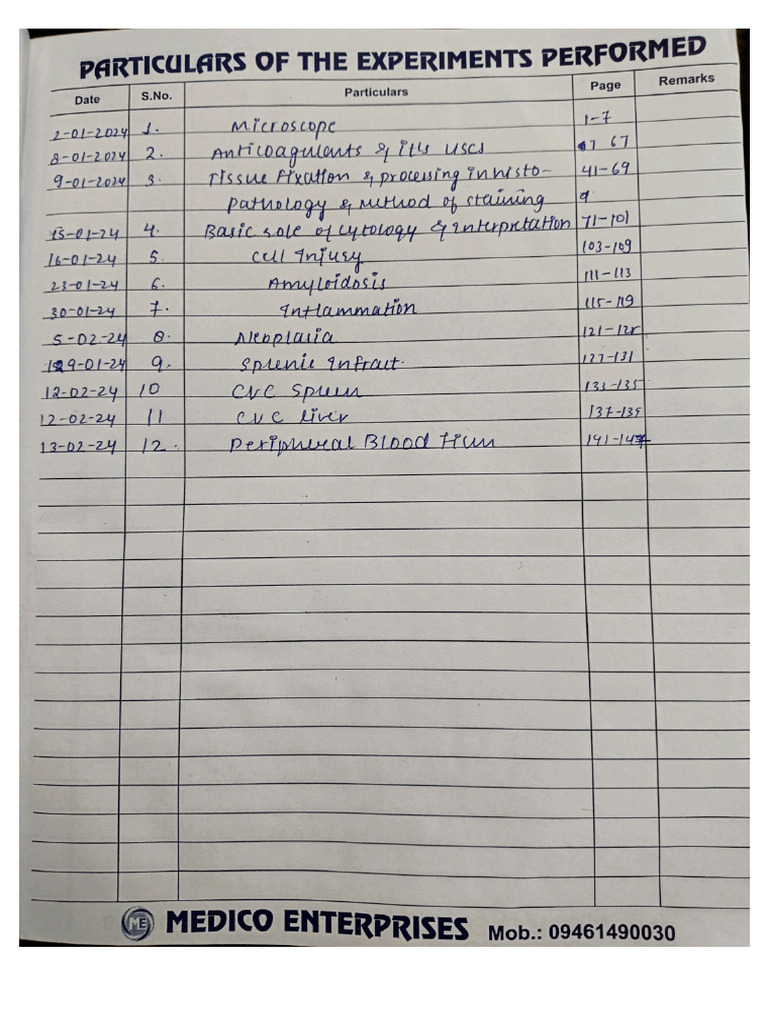 PARTICULARS OF THE EXPERIMENTS PERFORMED
Date S.No. Particulars Page Remarks
2-01-2024 1. Microscope 1-7
8-01-2024 2. Anticoagulants & its uses 67
9-01-2024 3. Tissue Fixation & processing in histo- 41-69
Pathology & Method of staining
15-01-24 4. Basic role of cytology & Interpretation 71-101
16-01-24 5. Cell Injury 103-109
23-01-24 6. Amyloidosis 111-113
30-01-24 7. Inflammation 115-119
5-02-24 8. Neoplasia 121-125
29-01-24 9. Splenic Infract. 127-131
12-02-24 10 CVC Spleen 133-135
12-02-24 11 CVC liver 137-139
13-02-24 12. Peripheral Blood Film 141-147
ME MEDICO ENTERPRISES Mob.: 09461490030